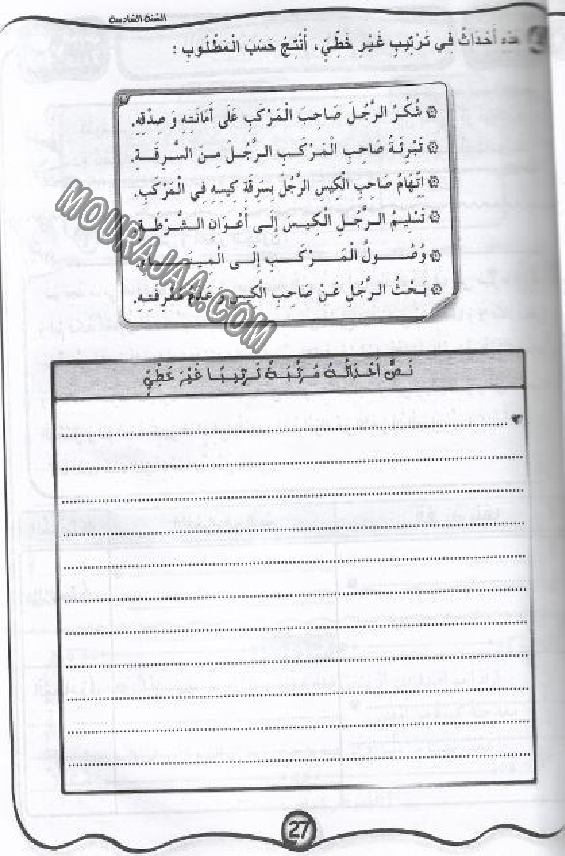 السنة السادسة
هذه أَحْدَاثٌ فِي تَرْتِيبٍ غَيْرِ خَطِّيٍّ، أُنْتِجُ حَسَبَ الْمَطْلُوبِ :
شُكْرُ الرَّجُلِ صَاحِبَ الْمَرْكَبِ عَلَى أَمَانَتِهِ وَ صِدْقِهِ.
تَبْرِئَةُ صَاحِبِ الْمَرْكَبِ الرَّجُلَ مِنَ السَّرِقَةِ.
اِتِّهَامُ صَاحِبِ الْكِيسِ الرَّجُلَ بِسَرِقَةِ كِيسِهِ فِي الْمَرْكَبِ.
تَسْلِيمُ الرَّجُلِ الْكِيسَ إِلَى أَعْوَانِ الشُّرْطَةِ.
وُصُولُ الْمَرْكَبِ إِلَى
بَحْثُ الرَّجُلِ عَنْ صَاحِبِ الْكِيسِ وَ عَدَمُ مَعْرِفَتِهِ.
MOURAJAA.COM
نَصٌّ أَحْدَاثُهُ مُرَتَّبَةٌ تَرْتِيبًا غَيْرَ خَطِّيٍّ
27